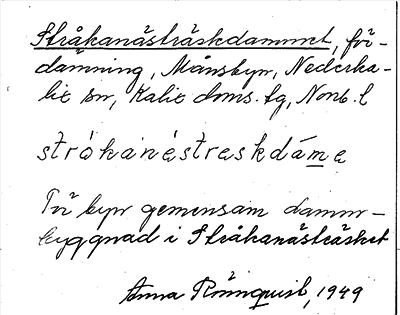 Stråkanästräskdammet, för-
dämning, Månsbyn, Nederka-
lix sn, Kalix doms. tg, Norrb. l
stròkanéstreskdáma
Två byar gemensam damm-
byggnad i Stråkanästräsket
Anna Rönnquist, 1949